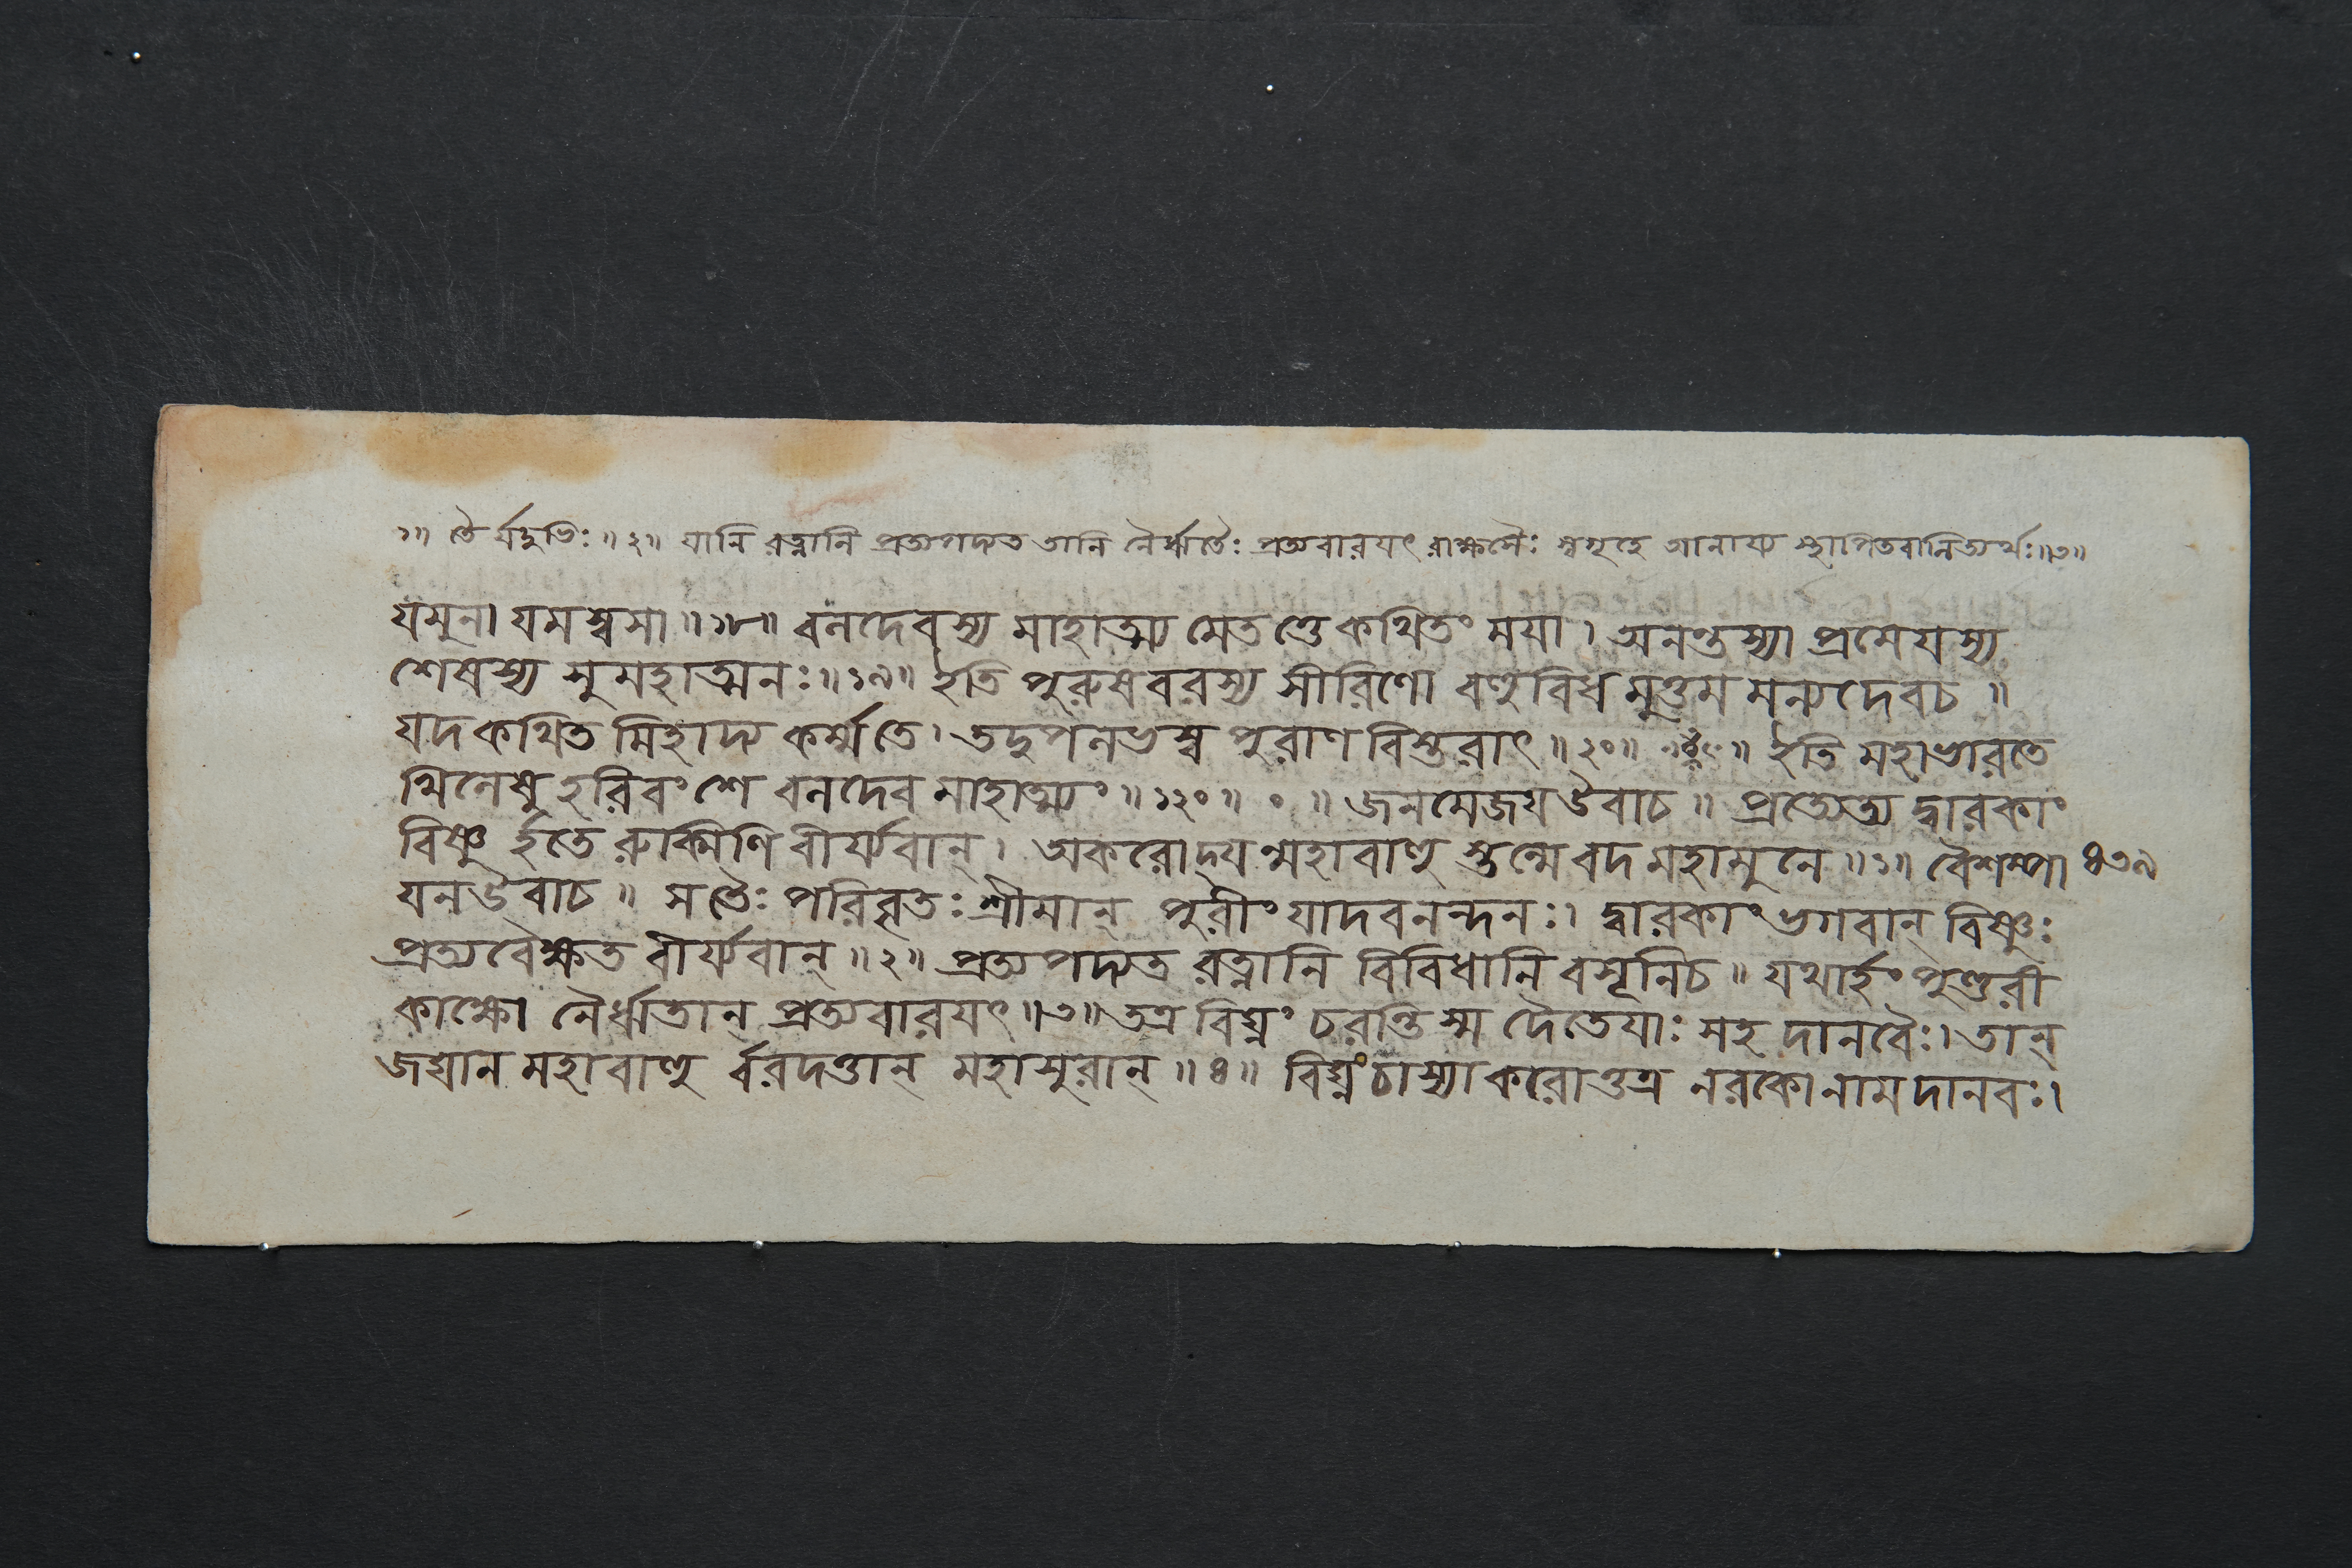 ১॥ তৈর্যদুভিঃ॥২॥ যানি রত্নানি প্রত্যপদ্যত তানি নৈর্ঋতৈঃ প্রত্যবারযৎ রাক্ষসৈঃ স্বগৃহে আনায্য স্থাপিতবানিত্যর্থঃ॥৩॥
যমুনা যমস্বসা॥১৮॥ বলদেবস্য মাহাত্ম্য মেতত্তে কথিতং মযা। অনন্তস্যা প্রমেযস্য
শেষস্য সুমহাত্মনঃ॥১৯॥ ইতি পুরুষবরস্য সীরিণো বহুবিধ মুত্তম মন্যদেবচ॥
যদকথিত মিহাদ্য কর্ম্মতে। তদুপলভস্ব পুরাণ বিস্তরাৎ॥২০॥ ইতি মহাভারতে
খিলেষু হরিবংশে বলদেব মাহাত্ম্যং॥১২০॥ ০ ॥ জনমেজয উবাচ॥ প্রত্যেত্য দ্বারকাং
বিষ্ণু র্হতে রুক্মিণি বীর্য্যবান্। অকরোদ্য ন্মহাবাহু স্তন্মে বদ মহামুনে॥১॥ বৈশম্পা ৪৩৯
যন উবাচ॥ সতৈঃ পরিবৃতঃ শ্রীমান্ পুরীং যাদবনন্দনঃ। দ্বারকাং ভগবান্ বিষ্ণুঃ
প্রত্যবেক্ষত বীর্য্যবান্॥২॥ প্রত্যপদ্যত রত্নানি বিবিধানি বসূনিচ॥ যথার্হং পুণ্ডরী
কাক্ষো নৈর্ঋতান প্রত্যবারযৎ॥৩॥ তত্র বিঘ্নং চরন্তি স্ম দৈতেযাঃ সহ দানবৈঃ। তান্
জঘান মহাবাহু র্বরদত্তান্ মহাসুরান্॥৪॥ বিঘ্নং চাস্যা করোত্তত্র নরকো নাম দানবঃ।